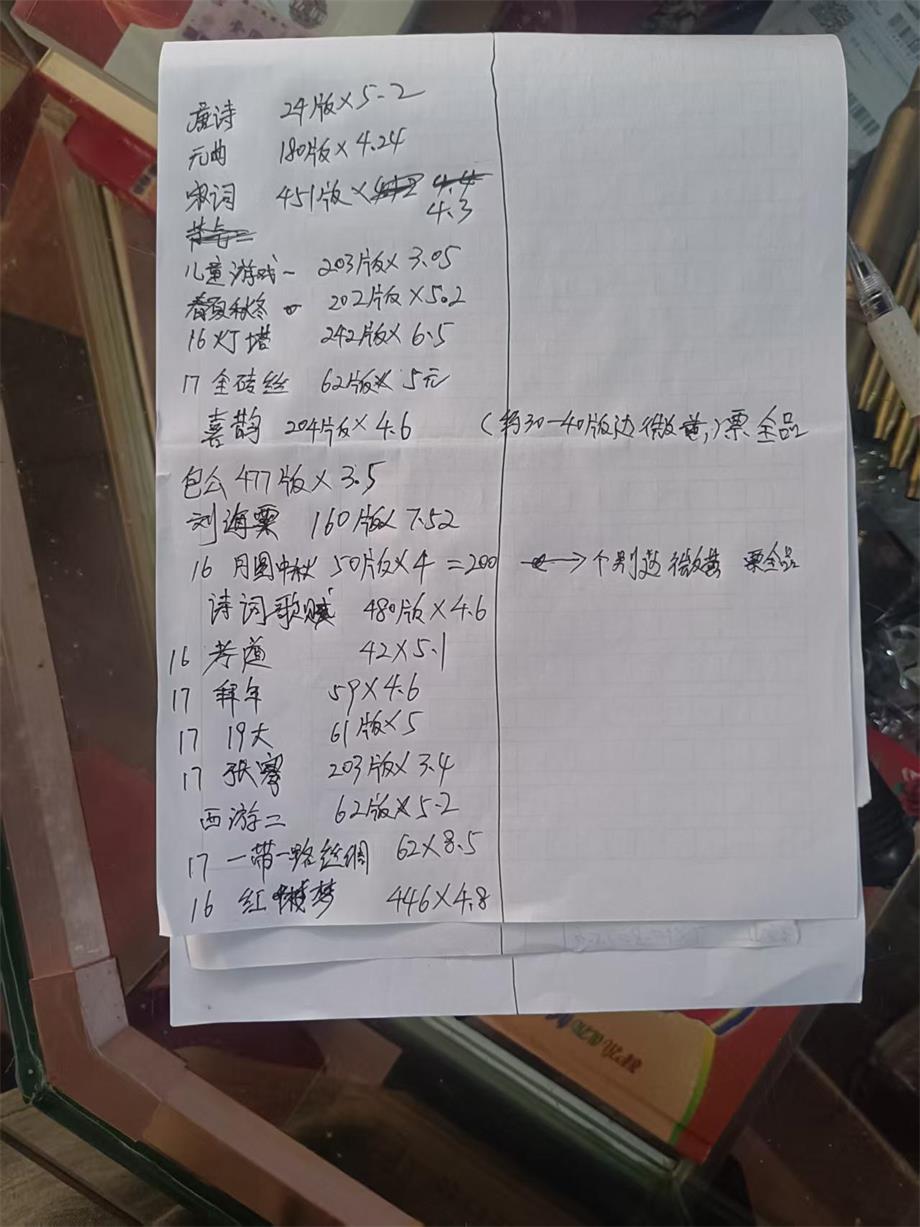 唐诗 24版×5.2
元曲 180版×4.24
宋词 451版× 4.4
4.3
儿童游戏一 203版×3.05
春夏秋冬 202版×5.2
16灯塔 242版×6.5
17 金砖 丝 62版× 5元
喜鹊 204版×4.6 (约30—40版边微黄,)票全品
包公 477版×3.5
刘海粟 160版×7.52
16 月圆中秋 50版×4=200 → 个别边微黄 票全品
诗词歌赋 480版×4.6
16 考道 42×5.1
17 拜年 59×4.6
17 19大 61版×5
17 张骞 203版×3.4
西游二 62版×5.2
17 一带一路丝绸 62×8.5
16 红楼梦 446×4.8